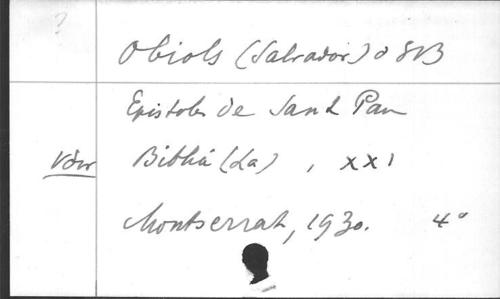 ?
Obiols (Salvador) O S B
Epistoles de Sant Pau
voir Biblia (La), XXI
Montserrat, 1930. 4°